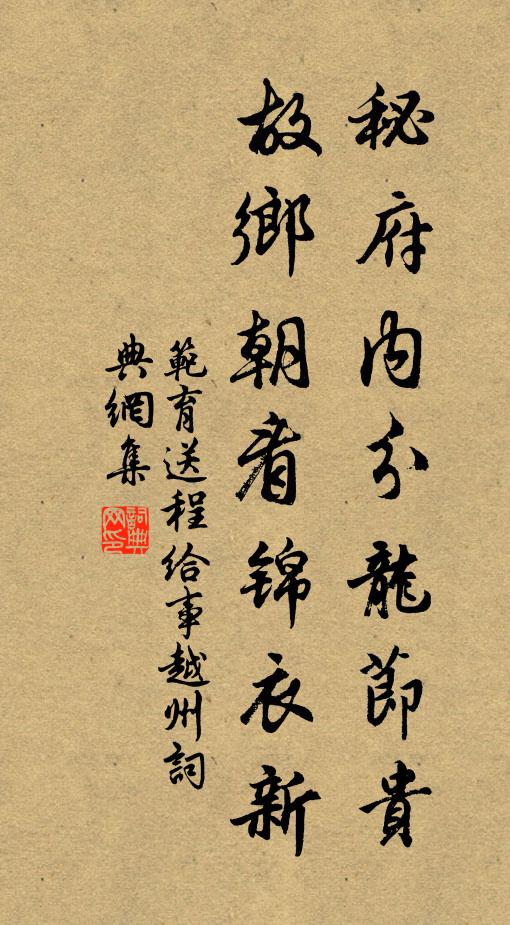 秘府内分龍節貴
故鄉朝看錦衣新
範育送程給事越州詞
典網集
詞典
网印